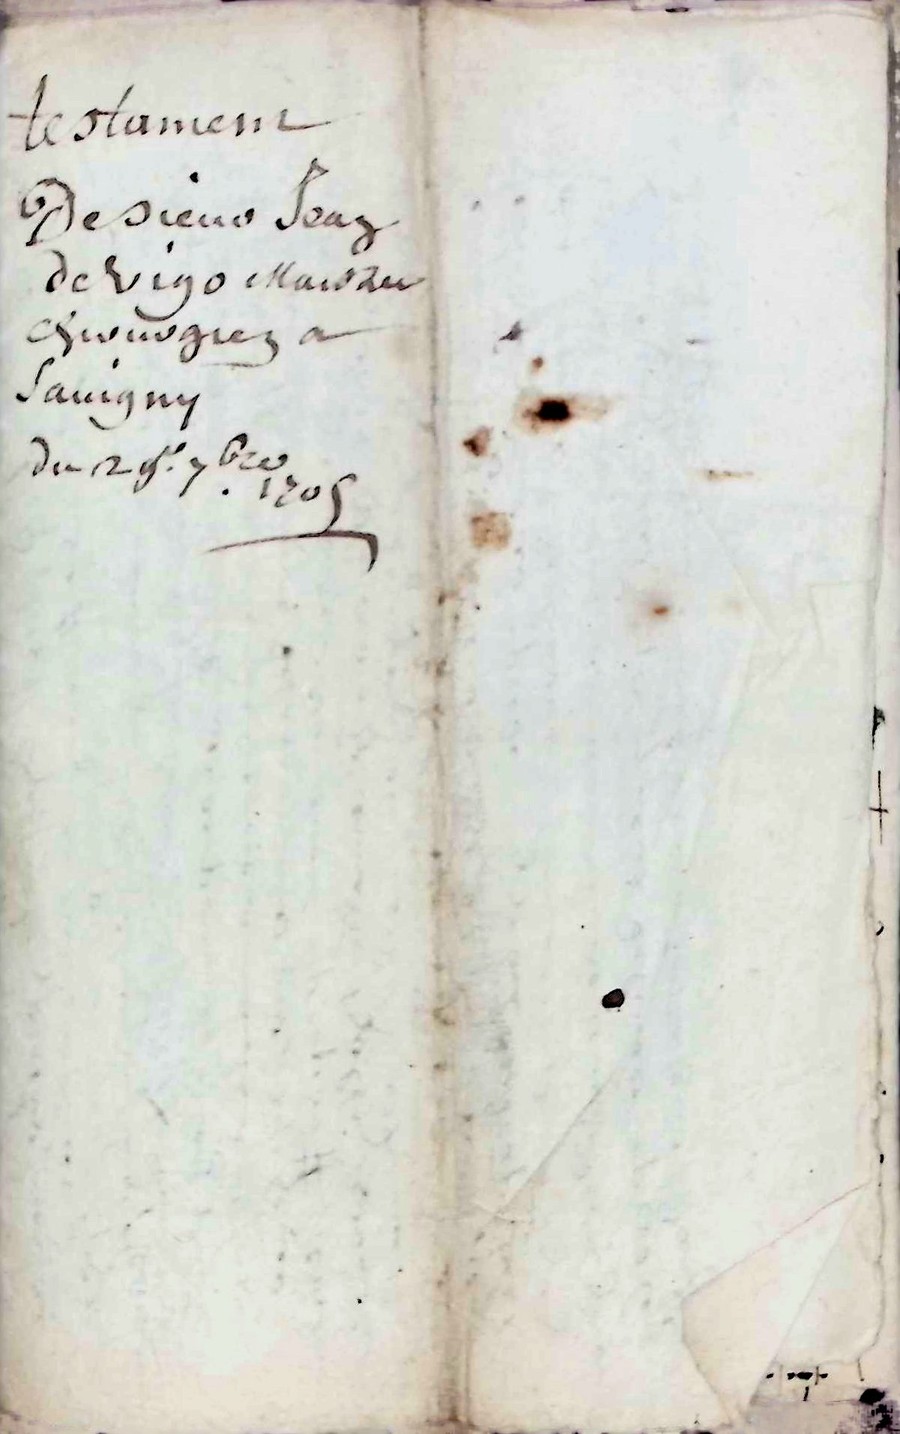 testament
De sieur Jean
de vigo Maistre
chirurgien a
Sauigny
du 29e. 7bre
. 1705